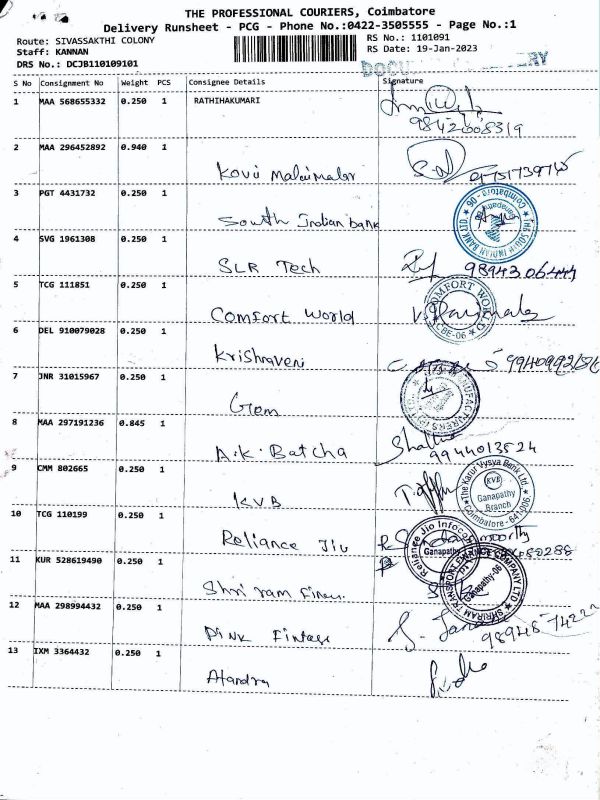 THE PROFESSIONAL COURIERS, Coimbatore
Delivery Runsheet - PCG - Phone No.:0422-3505555 - Page No.:1
Route: SIVASSAKTHI COLONY RS No.: 1101091
Staff: KANNAN RS Date: 19-Jan-2023
DRS No.: DCJB110109101
S No Consignment No Weight PCS Consignee Details Signature
1 MAA 568655332 0.250 1 RATHIHAKUMARI
9842608319
2 MAA 296452892 0.940 1
Kovii Malaimalar
3 PGT 4431732 0.250 1
South Indian bank
THE SOUTH INDIAN BANK LTD. Ganapathy Coimbatore - 06
4 SVG 1961308 0.250 1
SLR Tech
5 TCG 111851 0.250 1
Comfort World
COMFORT WORLD CBE-06
6 DEL 910079028 0.250 1
Krishnaveni
7 JNR 31015967 0.250 1
Gem
8 MAA 297191236 0.845 1
A.K. Batcha 9944013524
9 CMM 802665 0.250 1
KVB
The Karur Vysya Bank Ltd. KVB Ganapathy Branch Coimbatore - 641006
10 TCG 110199 0.250 1
Reliance Jiu
Reliance Jio Infocom Ganapathy
11 KUR 528619490 0.250 1
Shri ram Finan.
SHRIRAM TRANSPORT FINANCE COMPANY LTD Ganapathy-06
12 MAA 298994432 0.250 1
Pink Fintage
13 IXM 3364432 0.250 1